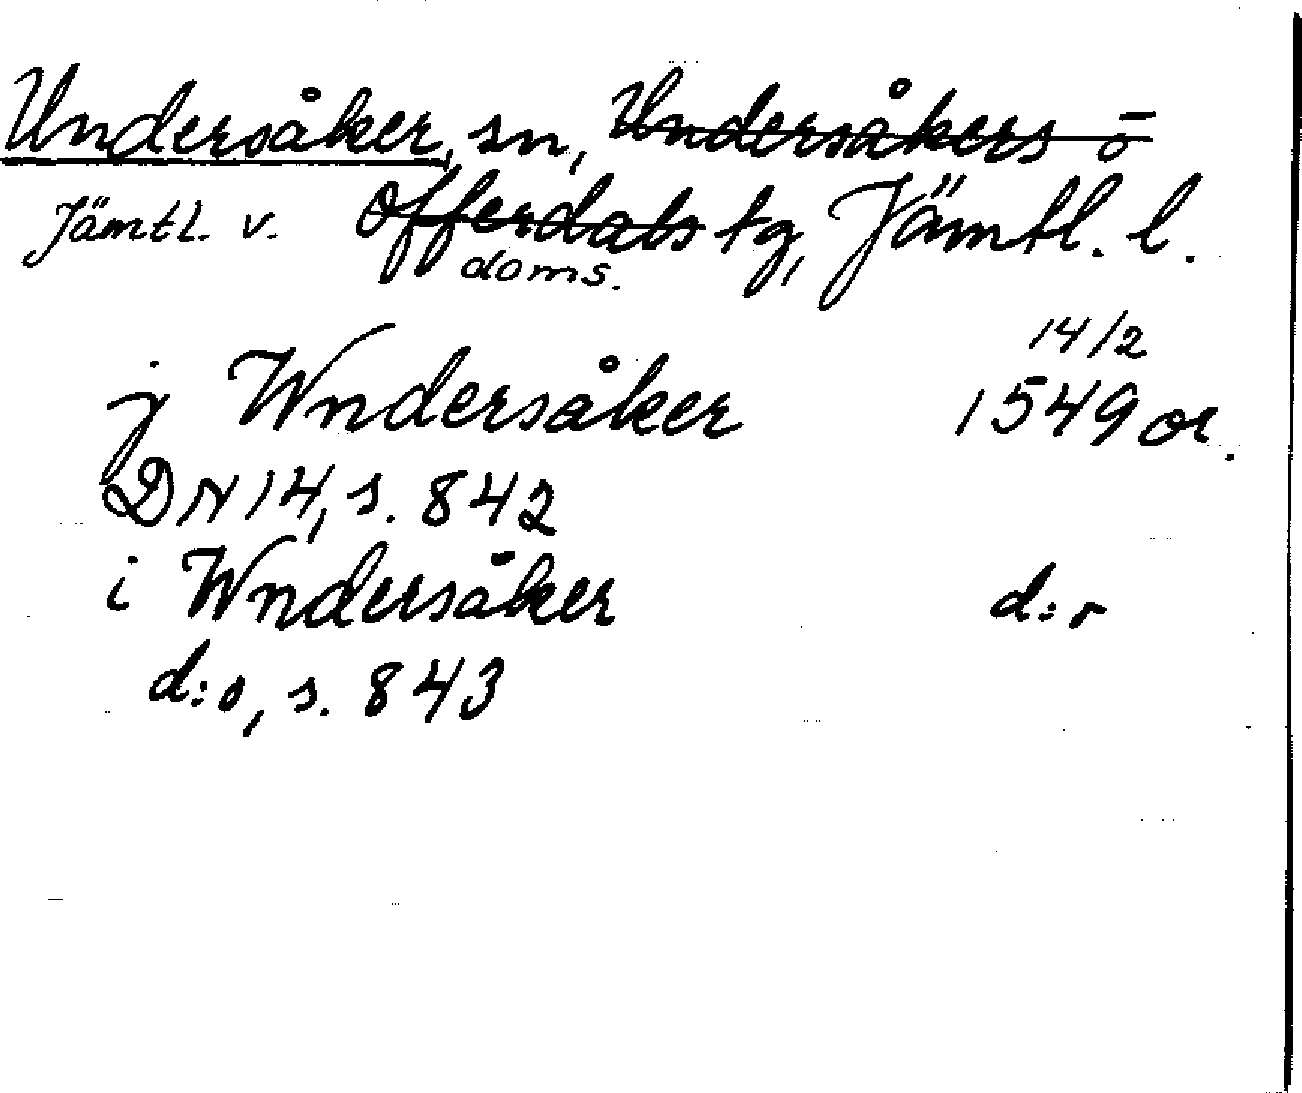 Undersåker, sn, Undersåkers o
Jämtl. v. Offerdals tg, Jämtl. l.
doms.
14/2
j Wndersåker 1549 or.
DN 14, s. 842
i Wndersåker d:o
d:o, s. 843